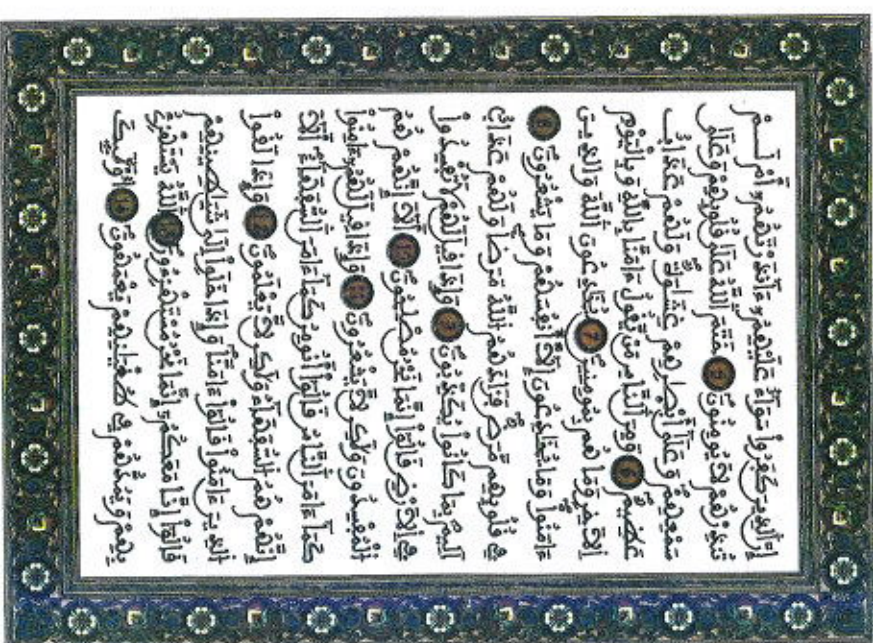 إِنَّ ٱلذِينَ كَفَرُواْ سَوَآءٌ عَلَيْهِمُۥٓ ءَآنذَرْتَهُمُۥٓ أَمْ لَمْ
تُنذِرْهُمْ لَا يُومِنُونَ 5 خَتَمَ ٱللَّهُ عَلَىٰ قُلُوبِهِمْ وَعَلَىٰ
سَمْعِهِمْ وَعَلَىٰٓ أَبْصَٰرِهِمْ غِشَٰوَةٌ وَلَهُمْ عَذَابٌ
عَظِيمٌ 6 وَمِنَ ٱلنَّاسِ مَنْ يَّقُولُ ءَامَنَّا بِاللَّهِ وَبِالْيَوْمِ
اِلَاخِرِ وَمَا هُم بِمُومِنِينَ 7 يُخَٰدِعُونَ ٱللَّهَ وَالذِينَ
ءَامَنُواْ وَمَا يُخَٰدِعُونَ إِلَّآ أَنفُسَهُمْ وَمَا يَشْعُرُونَ 8
فِي قُلُوبِهِم مَّرَضٌ فَزَادَهُمُ ٱللَّهُ مَرَضاً وَلَهُمْ عَذَابٌ
اَلِيمٌۢ بِمَا كَانُواْ يُكَذِّبُونَ 9 وَإِذَا قِيلَ لَهُمْ لَا تُفْسِدُواْ
فِي اِلَارْضِ قَالُوٓاْ إِنَّمَا نَحْنُ مُصْلِحُونَ 10 أَلَآ إِنَّهُمْ هُمُ
ٱلْمُفْسِدُونَ وَلَٰكِن لَّا يَشْعُرُونَ 11 وَإِذَا قِيلَ لَهُمُۥٓ ءَامِنُواْ
كَمَآ ءَامَنَ ٱلنَّاسُ قَالُوٓاْ أَنُومِنُ كَمَآ ءَامَنَ ٱلسُّفَهَآءُ اَلَآ
إِنَّهُمْ هُمُ ٱلسُّفَهَآءُ وَلَٰكِن لَّا يَعْلَمُونَ 12 وَإِذَا لَقُواْ
ٱلذِينَ ءَامَنُواْ قَالُوٓاْ ءَامَنَّا وَإِذَا خَلَوِاْ اِلَىٰ شَيَٰطِينِهِمْ
قَالُوٓاْ إِنَّا مَعَكُمُۥٓ إِنَّمَا نَحْنُ مُسْتَهْزِءُونَ 13 ٱللَّهُ يَسْتَهْزِئُ
بِهِمْ وَيَمُدُّهُمْ فِي طُغْيَٰنِهِمْ يَعْمَهُونَ أُوْلَٰٓئِكَ